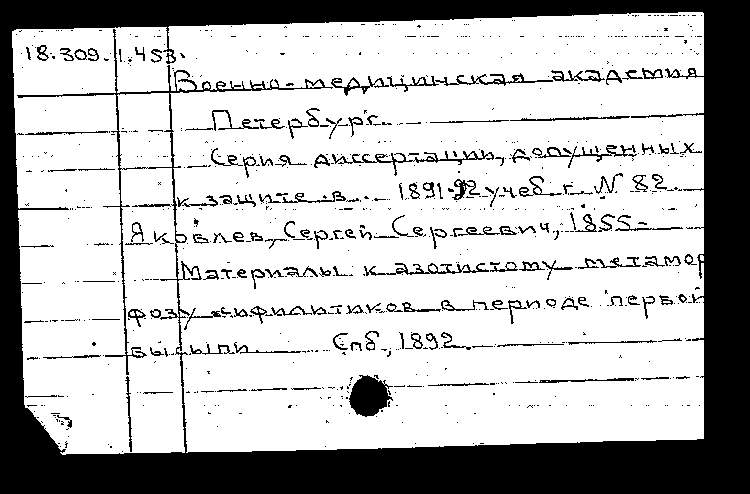 18.309.1.453.
Военно-медицинская академия
Петербург.
Серия диссертации, допущенных
к защите в 1891-92 учеб. г. N 82.
Яковлев, Сергей Сергеевич, 1855-
Материалы к азотистому метамор
фозу сифилитиков в периоде первой
высыпи. Спб, 1892.